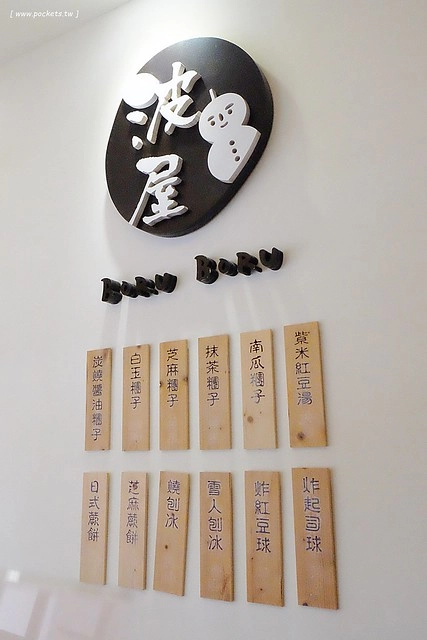 [ www.pockets.tw ]
波屋
BORU BORU
紫米紅豆湯
南瓜糰子
抹茶糰子
芝麻糰子
白玉糰子
炭燒醬油糰子
炸起司球
炸紅豆球
雪人刨冰
燒刨冰
芝麻煎餅
日式煎餅